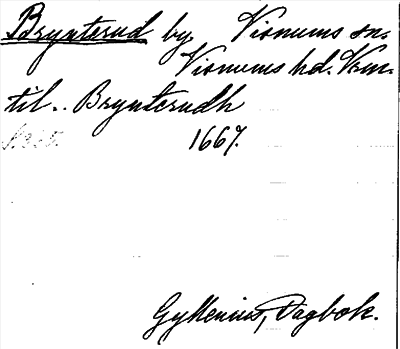 Brynterud by, Visnums sn.
Visnums hd. Vrm.
til.. Brynterudh
1667.
Gyllenius, Dagbok.